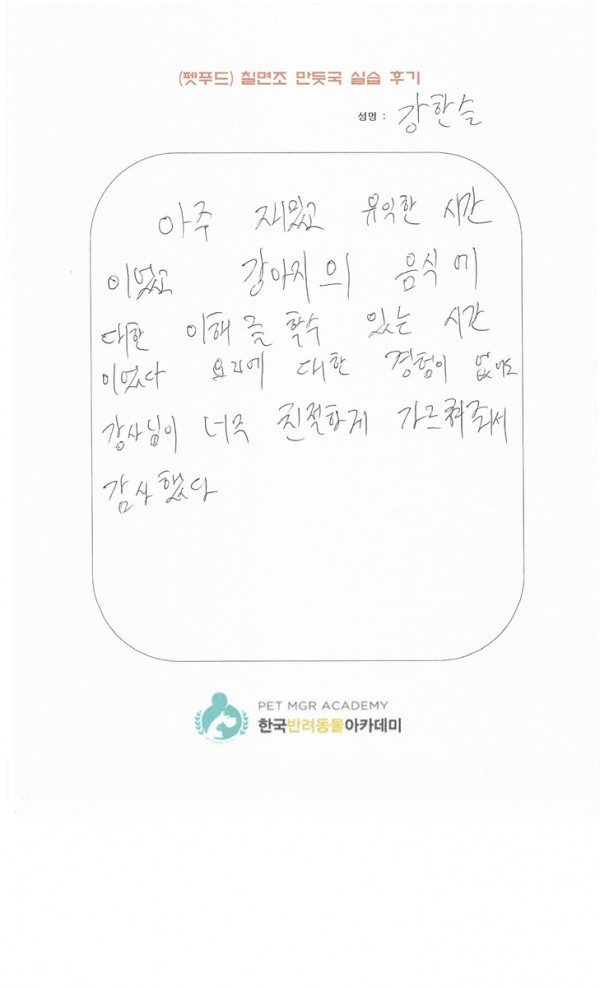 (펫푸드) 칠면조 만둣국 실습 후기
성명 : 강한솔
아주 재밌고 유익한 시간
이었고 강아지의 음식에
대한 이해를 할수 있는 시간
이었다 요리에 대한 경험이 없어도
강사님이 너무 친절하게 가르쳐줘서
감사했다
PET MGR ACADEMY
한국반려동물아카데미